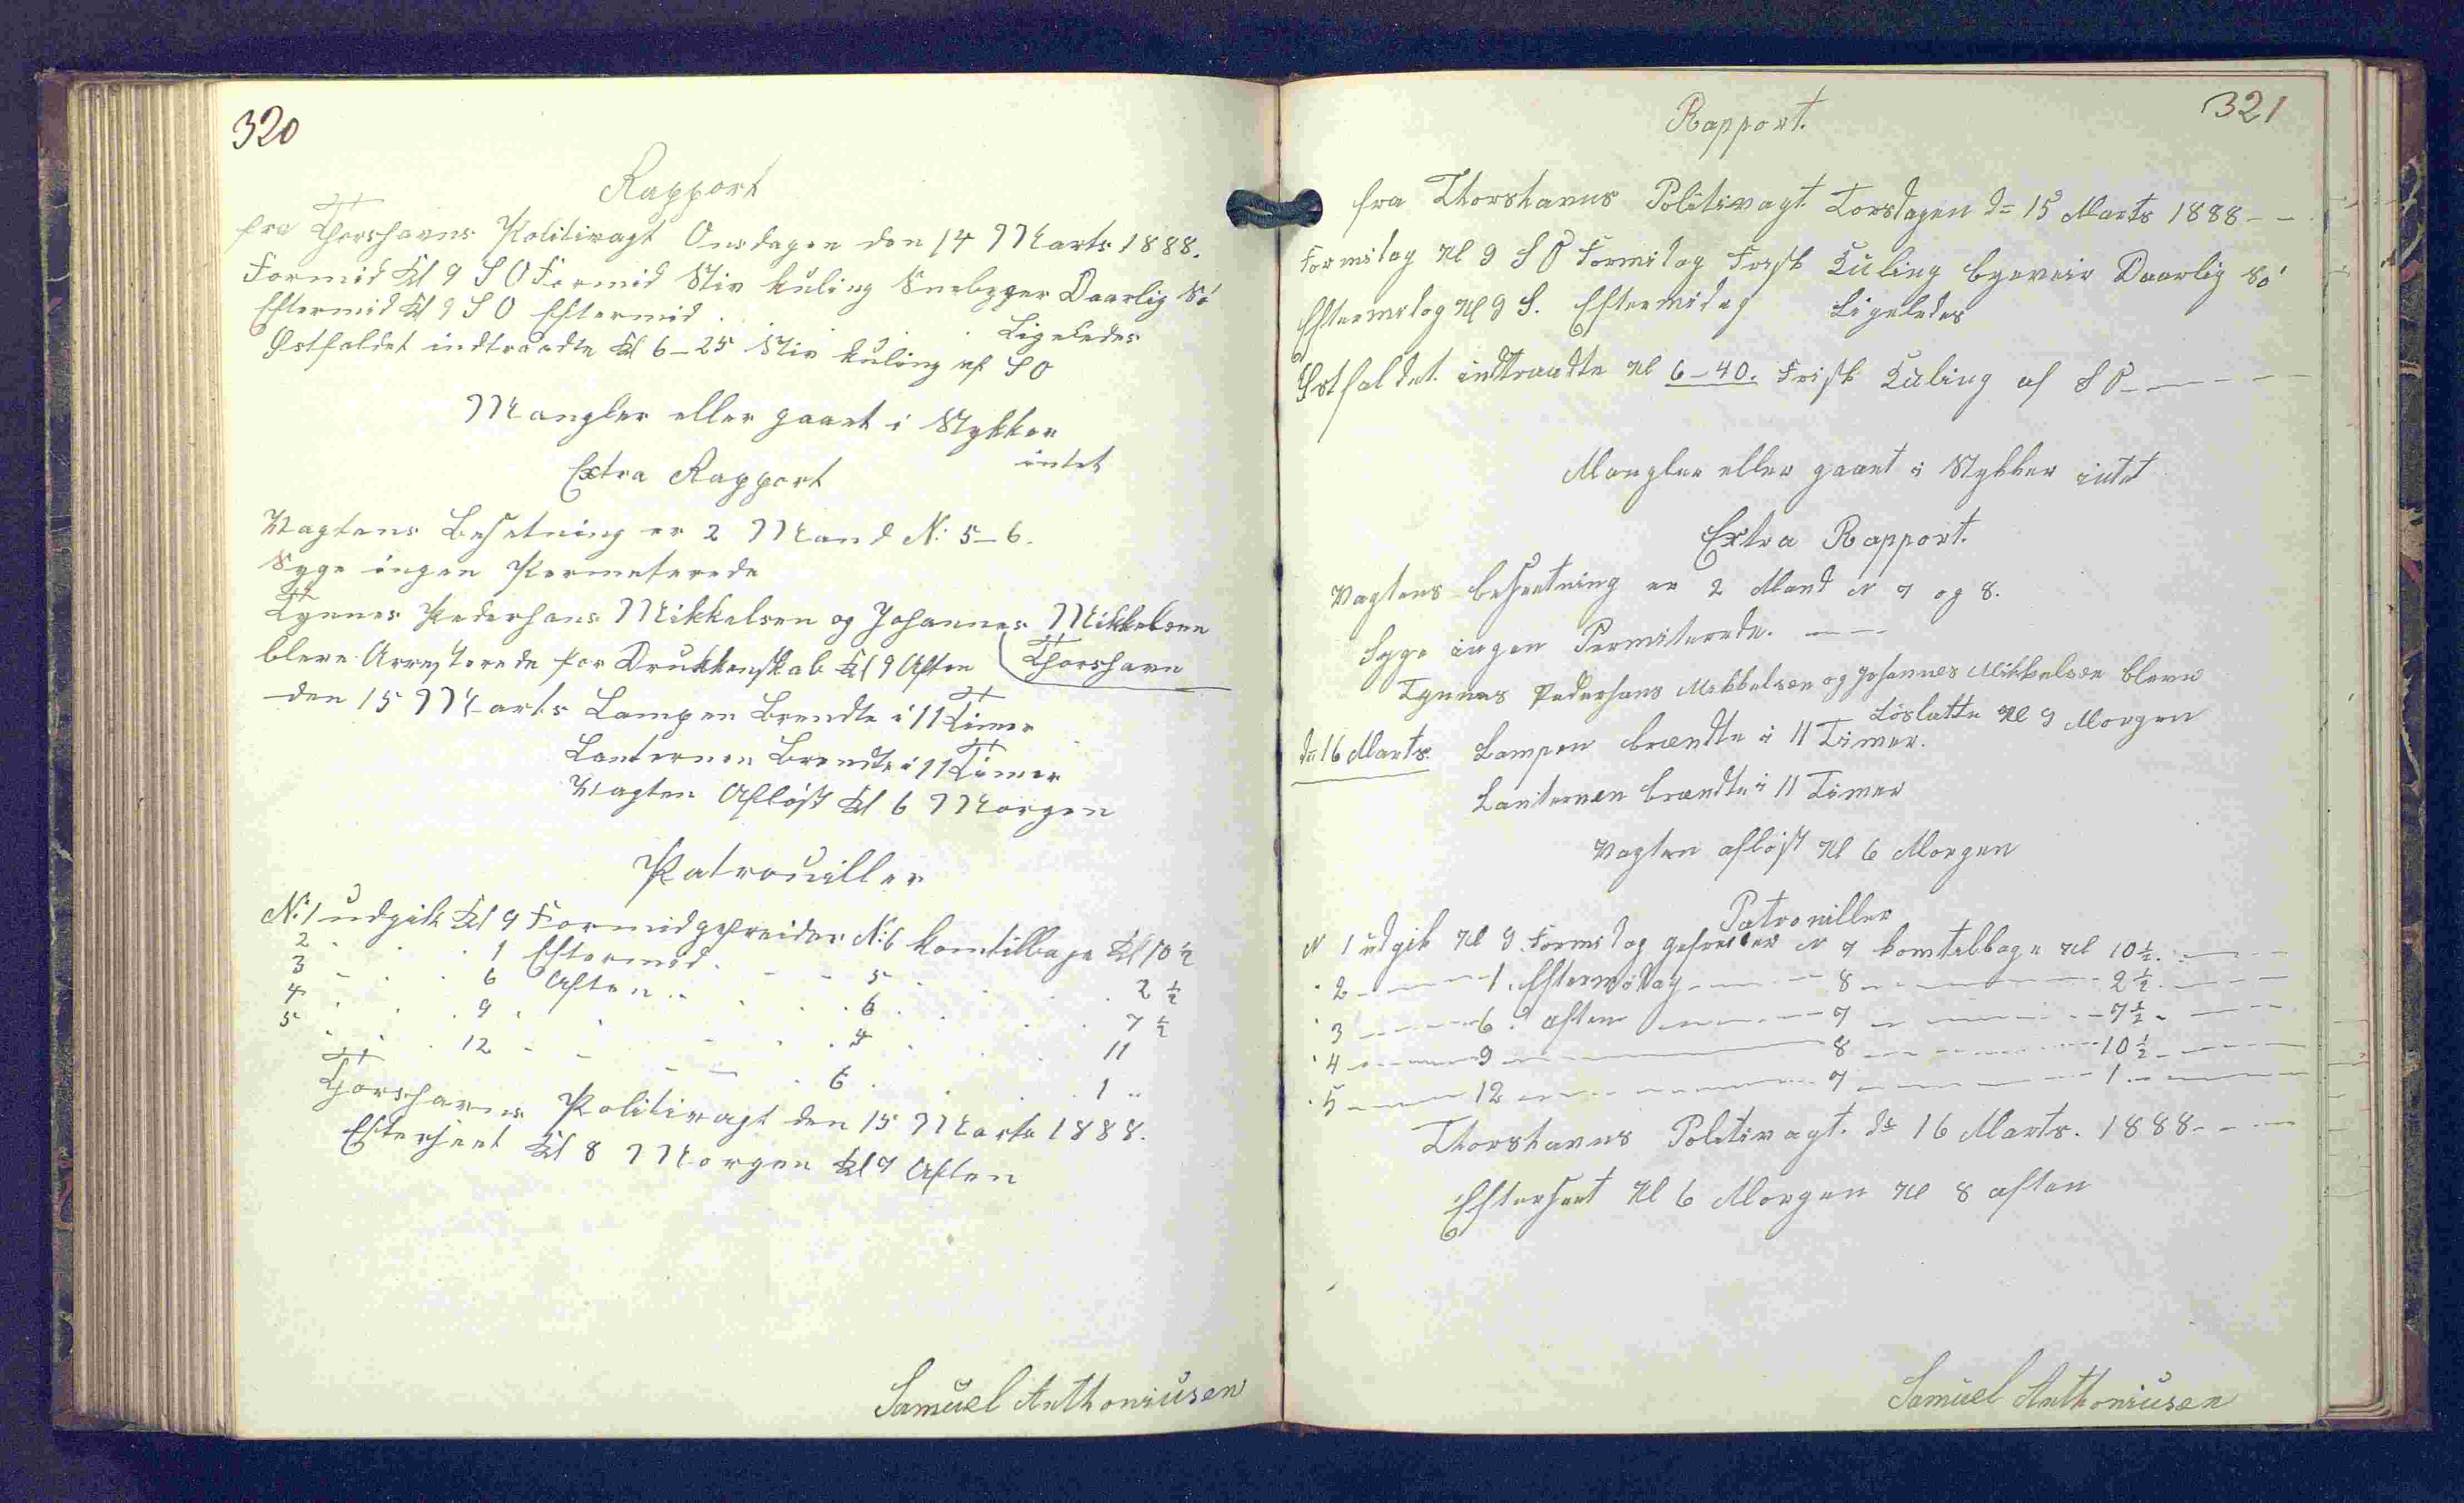 320
Rapport
fra Thorshavns Politivagt Onsdagen den 14 Marts 1888.
Formid Kl 9 SO Formid Stiv kuling Snebyger Daarlig Sö
Eftermid Kl 9 SO Eftermid . . . . . Ligeledes
Østfaldet indtraadte Kl 6-25 Stiv kuling af SO
Mangler eller gaaet i Stykker
intet
Extra Rapport
Vagtens Besetning er 2 Mand N: 5-6.
Syge ingen Permeterede
Tynnes Pederhans Mikkelsen og Johannes Mikkelsen
bleve Arresterede for Drukkenskab Kl 9 Aften (Thorshavn
den 15 Marts Lampen Brendte i 11 Timer
Lanternen Brendte i 11 Timer
Vagten Afløst Kl 6 Morgen
Patrouiller
N: 1 udgik Kl 9 Formid gefreider N: 6 komtilbage Kl 10 ½
2 . . . 1 Eftermid . - - 5 . . . 2 ½
3 - . . 6 Aften .. . . . 6 . . . 7 ½
4 . . . 9 . . . . . 5 . . . 11
5 . . . 12 - - - - . 6 . . . 1 ..
Thorshavns Politivagt den 15 Marts 1888.
Efterseet Kl 8 Morgen Kl 7 Aften
Samuel Anthoniusen
321
Rapport.
fra Thorshavns Politivagt Torsdagen dn 15 Marts 1888 - -
Formidag Kl 9 SO Formidag Frisk Kuling byeveir Daarlig Sö
Eftermidag Kl 9 S. Eftermidag Ligeledes
Østfaldet indtraadte Kl 6-40. Frisk Kuling af SO - - - -
Mangler eller gaaet i Stykker intet
Extra Rapport.
Vagtens besætning er 2 Mand N 7 og 8.
Syge ingen Permiterede. - -
Tynnes Pederhans Mikkelsen og Johannes Mikkelsen bleve
Löslatte Kl 9 Morgen
dn 16 Marts. Lampen brændte i 11 Timer.
Lanternen brændte i 11 Timer
Vagten afløst Kl 6 Morgen
Patrouiller
N 1 udgik Kl 9 Formidag gefreider N 7 komtilbage Kl 10 ½. - -
" 2 - - - 1. Eftermidag - - - 8 - - - 2 ½ - - -
" 3 - - - 6. aften - - - 7 - - - 7 ½ - - -
" 4 - - - 9 - - - 8 - - - 10 ½ - - -
" 5 - - - 12 - - - 7 - - - 1. - - -
Thorshavns Politivagt. dn 16 Marts. 1888 - - -
Efterseet Kl 6 Morgen Kl 8 aften
Samuel Anthoniusen